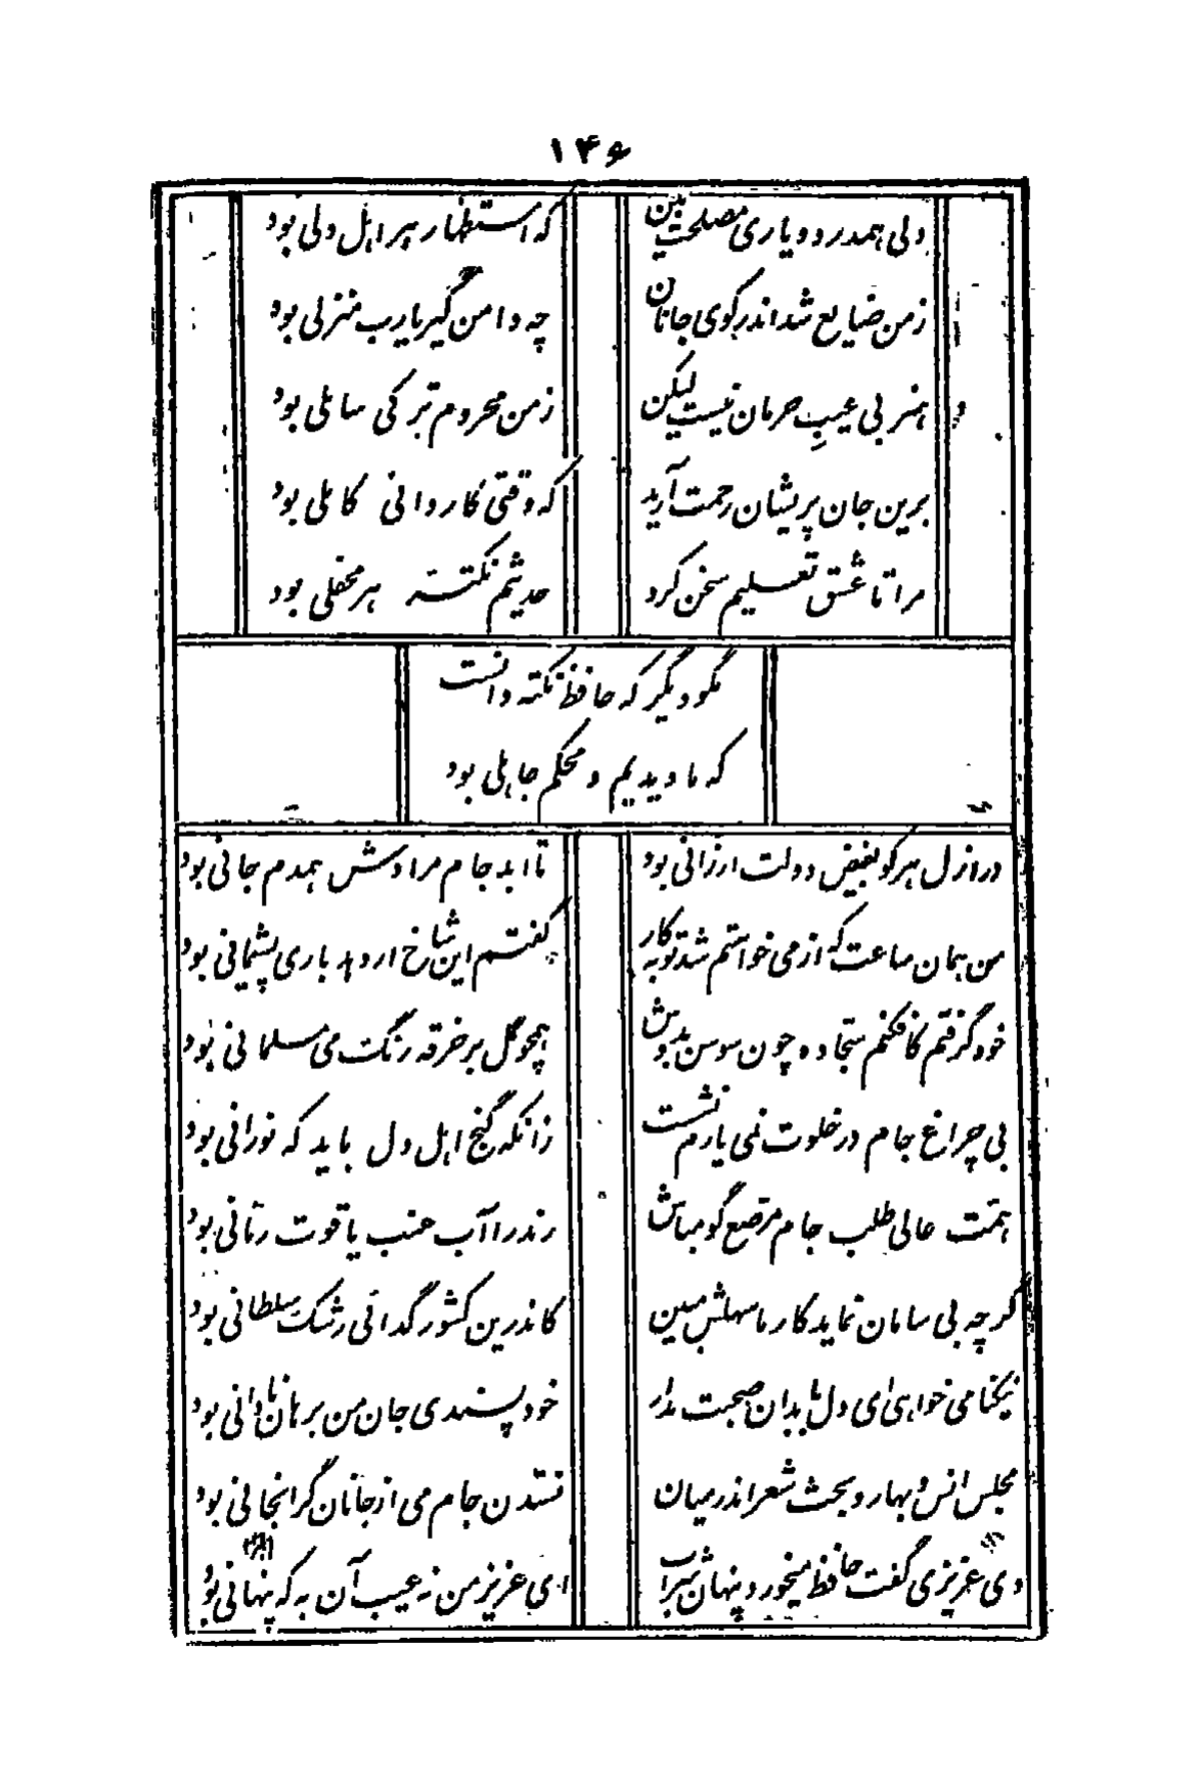 ۱۴۶
دلی همدرد و یاری مصلحت بین که استظهار هر اهل دلی بود
زمن ضایع شد اندر کوی جانان چه دامن گیر یارب منزلی بود
هنر بی عیبِ حرمان نیست لیکن زمن محروم تر کی سایلی بود
برین جان پریشان رحمت آرید که وقتی کاردانی کاملی بود
مرا تا عشق تعلیم سخن کرد حدیثم نکته هر محفلی بود
مگو دیگر که حافظ نکته دانست
که ما دیدیم و محکم جاهلی بود
در ازل هر کو بفیض دولت ارزانی بود تا ابد جام مرادش همدم جانی بود
من همان ساعت که از می خواستم شد توبه کار گفتم این شاخ ار دهد باری پشیمانی بود
خود گرفتم کافکنم سجاده چون سوسن بدوش همچو گل بر خرقه رنگ می مسلمانی بود
بی چراغ جام در خلوت نمی یارم نشست زانکه گنج اهل دل باید که نورانی بود
همت عالی طلب جام مرصع گو مباش رند را آب عنب یاقوت رمانی بود
گرچه بی سامان نماید کار ما سهلش مبین کاندرین کشور گدائی رشک سلطانی بود
نیکنامی خواهی ای دل با بدان صحبت مدار خود پسندی جان من برهان نادانی بود
مجلس انس و بهار و بحث شعر اندر میان نستدن جام می از جانان گرانجانی بود
دی عزیزی گفت حافظ میخورد پنهان شراب ای عزیز من نه عیب آن به که پنهانی بود